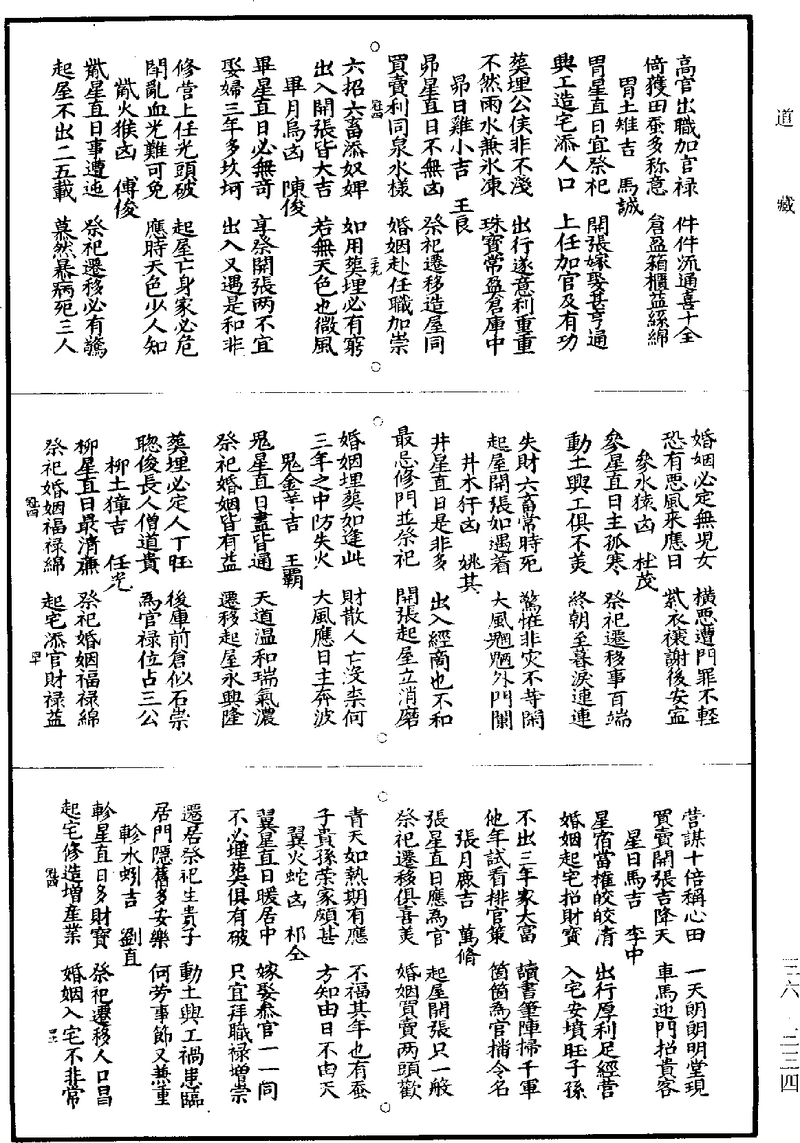 道藏
高官出職加官祿　件件流通喜十全
倚獲田蚕多称意　倉盈箱櫃蓝絲綿
胃土雉吉　馬誠
胃星直日宜祭祀　開張嫁娶甚亨通
興工造宅添人口　上任加官及有功
葬埋公侯非不淺　出行遂意利重重
不然雨水兼氷凍　珠寶常盈倉庫中
昴日雞小吉　王良
昴星直日不無凶　祭祀遷移造屋同
買賣利同泉水樣　婚姻赴任職加崇
六招六畜添奴婢　如用葬埋必有窮
出入開張皆大吉　若無天色也微風
畢月烏凶　陳俊
畢星直日必無奇　享祭開張两不宜
娶婦三年多坎坷　出入又遇是和非
修營上任光頭破　起屋亡身家必危
閙亂血光難可免　應時天色少人知
觜火猴凶　傅俊
觜星直日事遭迍　祭祀遷移必有驚
起屋不出二五載　蓦然暴病死三人
婚姻必定無兒女　横悪遭門罪不輕
恐有悪風来應日　紫衣禳謝後安寍
參水猿凶　杜茂
參星直日主孤寒　祭祀遷移事百端
動土興工俱不美　終朝至暮淚連連
失財六畜常時死　驚恠非灾不等閑
起屋開張如遇着　大風颲颲外門闌
井木犴凶　姚其
井星直日是非多　出入經商也不和
最忌修門並祭祀　開張起屋立消磨
婚姻埋葬如逢此　財散人亡没柰何
三年之中防失火　大風應日主奔波
鬼金羊吉　王霸
鬼星直日盡皆通　天道温和瑞氣濃
祭祀婚姻皆有益　遷移起屋永興隆
葬埋必定人丁旺　後庫前倉似石崇
聦俊長人僧道貴　為官祿位占三公
柳土獐吉　任光
柳星直日最清廉　祭祀婚姻福祿綿
祭祀婚姻福祿綿　起宅添官財祿益
营謀十倍稱心田　一天朗朗明堂現
買賣開張吉降天　車馬迎門招貴客
星日馬吉　李中
星宿當權皎皎清　出行厚利足經营
婚姻起宅招財寳　入宅安墳旺子孫
不出三年家大富　讀書筆陣掃千軍
他年試看排官策　箇箇為官播令名
張月鹿吉　萬脩
張星直日應為官　起屋開張只一般
祭祀遷移俱喜美　婚姻買賣两頭歡
青天如熱期有應　不福其年也有蚕
子貴孫荣家頗甚　方知由日不由天
翼火蛇凶　邳仝
翼星直日暖居中　嫁娶叅官一一同
不必埋葬俱有破　只宜拜職祿增崇
遷居祭祀生貴子　動土興工禍患臨
居門隱舊多安樂　何劳事節又兼重
軫水蚓吉　劉直
軫星直日多財寳　祭祀遷移人口昌
起宅修造增産業　婚姻入宅不非常
三六｜二三四